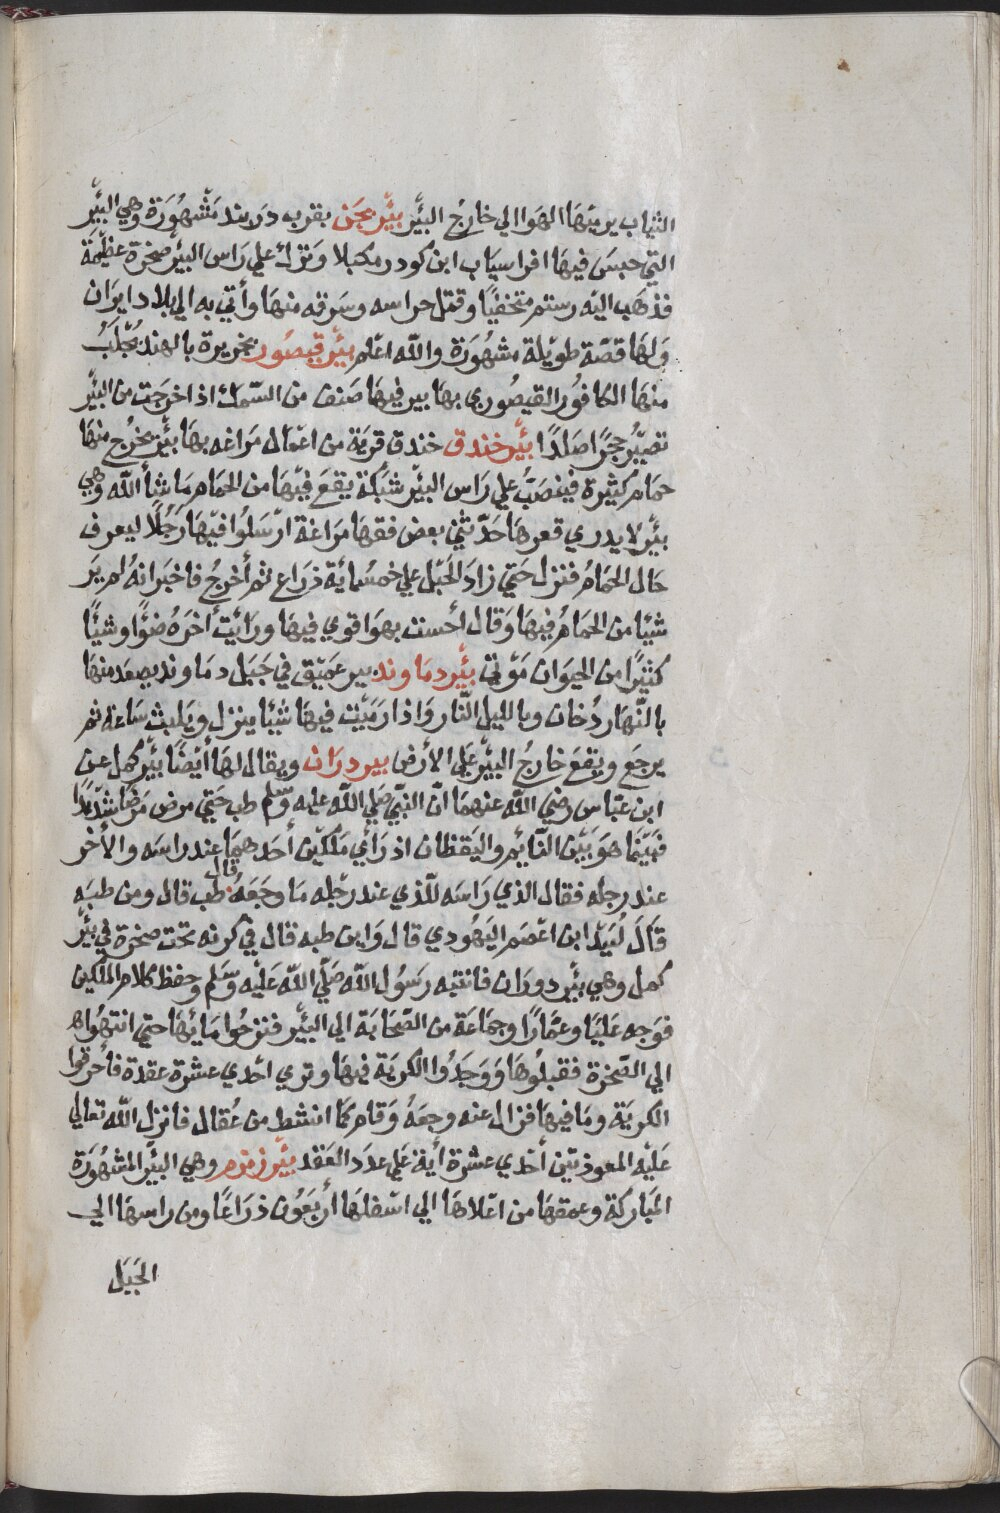 الثياب يرميها الهوا الي خارج البيّر بيّر بجن بقربه دربند مشهورة وهي البيّر
التي حبس فيها افراسياب ابن كودرز مكبلا وترك علي راس البير صخرة عظيمة
فذهب اليه رستم متخفيًا وقتل حراسه وسرقه منها وأتي به الي بلاد ايران
ولها قصّة طويلة مشهورة والله اعلم بيّر قيصُور بجزيرة بالهند يُجلَبُ
منها الكافور القيصُوري بها بير فيها صنف من السّمك اذا خرجت من البيّر
تصيّرُ حجرًا صلدًا بيّر خندق خندق قرية من اعمال مراغه بها بيّر يخرُج منها
حمام كثيرة فينصَبُ علي راس البيّر شبكة يقع فيها من الحمام ما شأ الله وهي
بيّر لا يدري قعرها حدّثني بعض فقها مراغة ارسَلُوا فيها رَجُلًا ليعرف
حال الحمام فنزل حتي زاد الحَبْل علي خمسُمائة ذراع ثم أخرجُ فاخبر انهُ لم يَر
شيًا من الحمام فيها وقال أحست بهوا قوي فيها ورايت أخرَهُ ضئوًا وشيًا
كثيرًا من الحيوان مَوْتي بيّر دماوند بير عميق في جبل دماوند يصعد منها
بالنّهار دُخان وبالليل النّار واذا رميّت فيها شيًا ينزل ويلبث ساعة ثم
يرجع ويقع خارجُ البيّر علي الأرض بير دران ويقال لها أيضًا بيّر كمل عن
ابن عبّاس رضي الله عنهما انّ النبيّ صلي الله عليه وسلم طب حتي مرض مرضًا شديدًا
فبينما هو بين النّايم واليقظان اذ رأي ملكين أحدهما عند راسه والأخر
عند رجله فقال الذي راسه للّذي عند رجله ما وجعَهُ قال طب قال ومن طبَه
قالَ لُبَيْد ابن اعصَم اليهودي قال واين طبه قال في كرنه تحت صخرة في بيّر
كمل وهي بيّر دوران فانتبه رسُول الله صلّي الله عليه وسلم وحفظ كلام الملكين
فوجه عليا وعمّارًا وجماعة من الصّحابة الي البيّر فنزحُوا مائها حتي انتهوا
الي الصّخرة فقبلُوها ووجدُوا الكرية فيها وتري احدي عشرة عقدة فأحرقوا
الكرية وما فيها فزال عنه وجعهُ وقام كما انشط من عُقال فانزل الله تعالي
عليه المعوذتين أحدي عشرة أية علي عدد العقد بيّر زمزم وهي البيّر المشهورة
المباركة وعمقها من اعلاها الي اسفلها أربعُون ذراعًا ومن راسها الي
الجَبَل